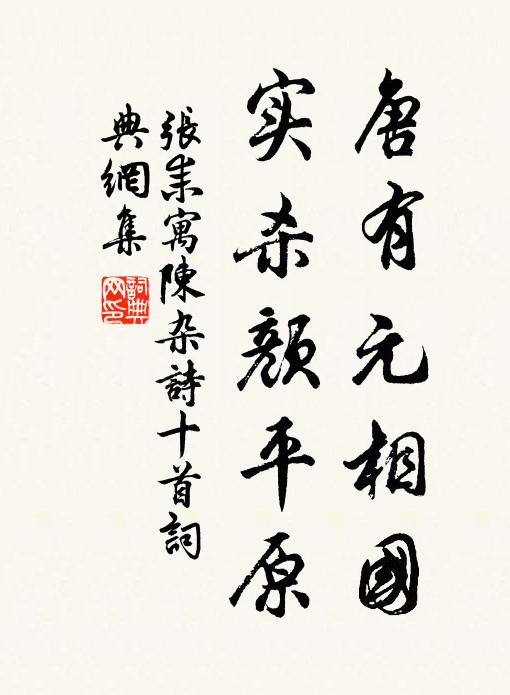 唐有元相國
实杀顏平原
張耒寓陳杂詩十首詞
典網集
詞典
网印